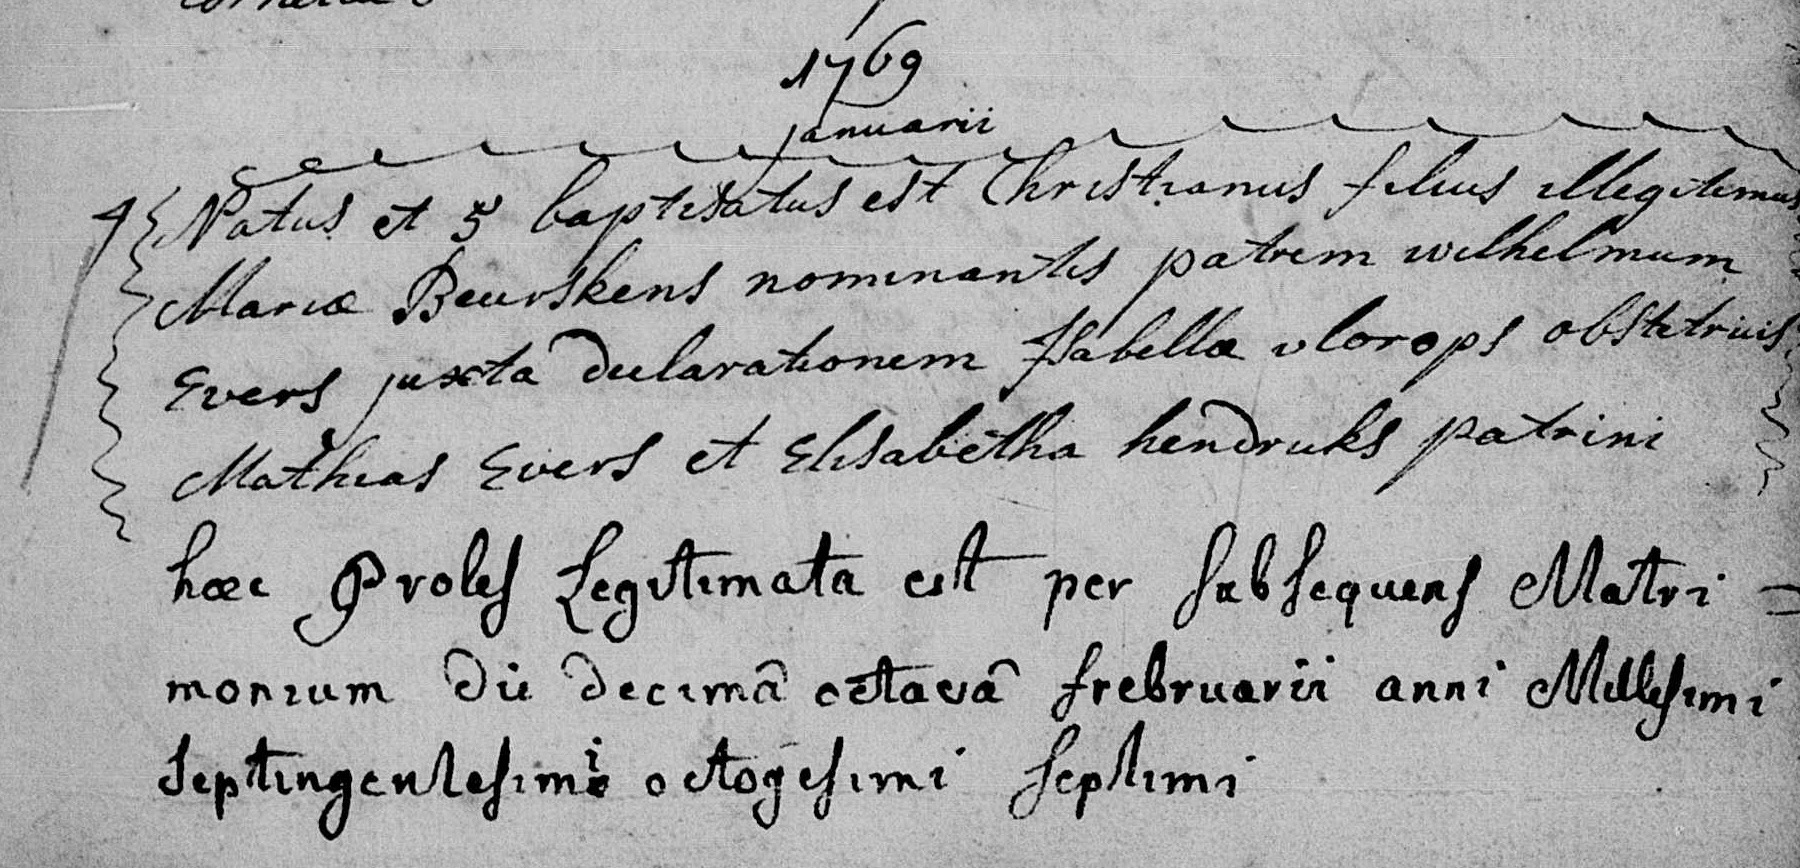 1769
januarii
4 Natus et 5 baptisatus est Christianus filius illegitimus
Mariæ Beurskens nominantis patrem wilhelmum
Evers juxta declarationem Isabellæ vlorops obstetricis
Mathias Evers et Elisabetha hendricks patrini
hæc Proles Legitimata est per subsequens Matri=
monium die decimâ octavâ frebruarii anni Millesimi
septingentesimi octogesimi septimi